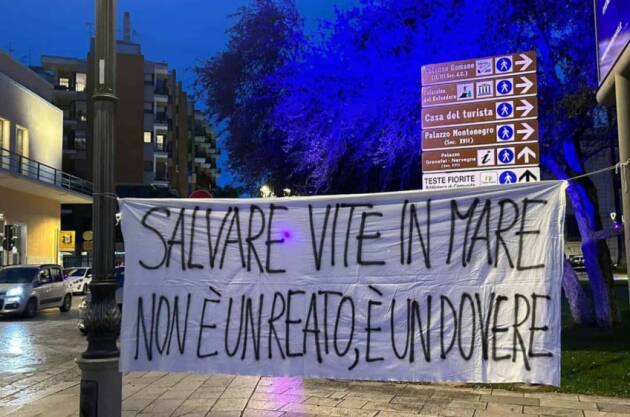 Colonne Romane
(II/III Sec. d.C.)
Palazzina
del Belvedere
Casa del turista
Palazzo Montenegro
(Sec. XVII)
Palazzo
Granafei - Nervegna
i
TESTE FIORITE
SALVARE VITE IN MARE
NON È UN REATO, È UN DOVERE